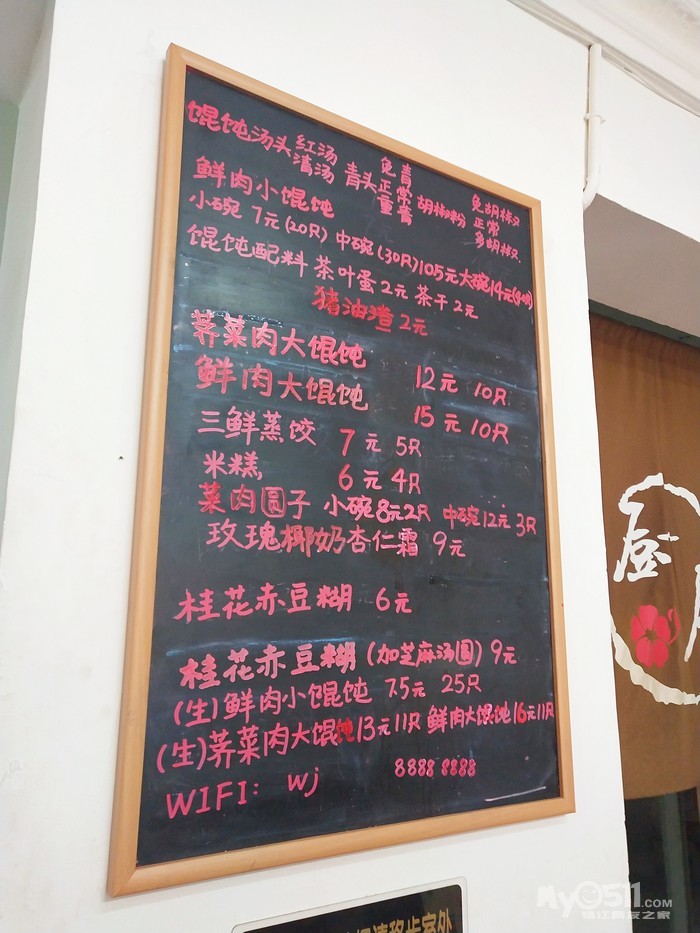 馄饨汤头 红汤 清汤 青头 免青 正常 重青 胡椒粉 免胡椒 正常 多胡椒
鲜肉小馄饨
小碗 7元(20只) 中碗(30只)105元大碗14元(40只)
馄饨配料 茶叶蛋2元 茶干2元
猪油渣2元
荠菜肉大馄饨 12元 10只
鲜肉大馄饨 15元 10只
三鲜蒸饺 7元 5只
米糕 6元 4只
菜肉圆子 小碗8元2只 中碗12元3只
玫瑰椰奶杏仁霜 9元
桂花赤豆糊 6元
桂花赤豆糊(加芝麻汤圆)9元
(生)鲜肉小馄饨 7.5元 25只
(生)荠菜肉大馄饨13元11只 鲜肉大馄饨16元11只
WIFI: wj 8888 8888
厨
My0511.com
镇江网友之家
请移步室外